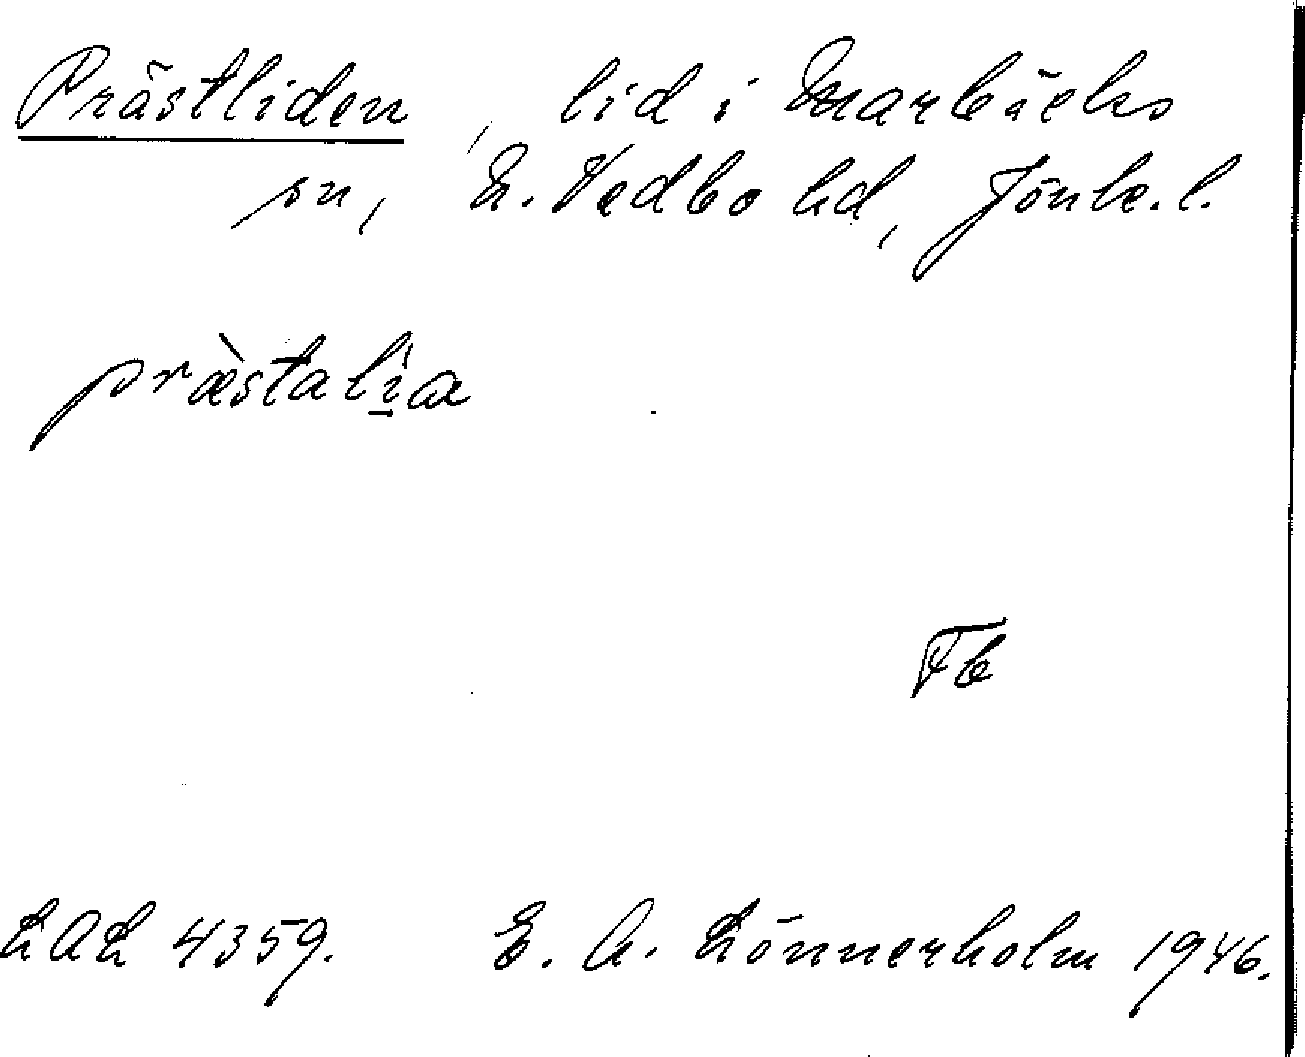 Prästliden, lid i Marbäcks
sn, N. Vedbo hd, Jönk. l.
præ̀stali̱a
Fb
LAL 4359. E. A. Lönnerholm 1946.